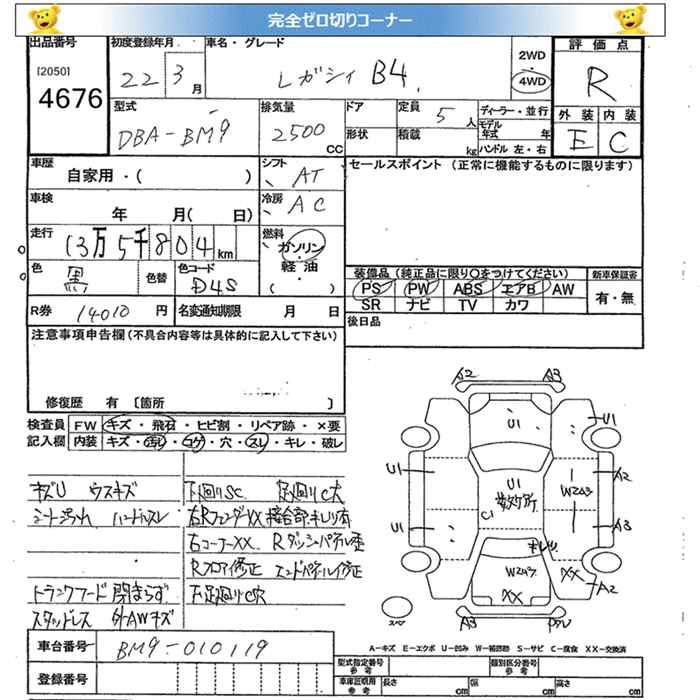 完全ゼロ切りコーナー
出品番号 初度登録年月 車名・グレード 2WD 評価点
[2050] 4676 22 3月 レガシィ B4 4WD R
型式 排気量 ドア 定員 5人 ディーラー・並行 外装 内装
DBA-BM9 2500CC 形状 積載 kg モデル年式 年 ハンドル 左・右 E C
車歴 シフト セールスポイント (正常に機能するものに限ります)
自家用・( ) AT
車検 冷房
年 月( 日) AC
走行 燃料
13万5千804km ガソリン・軽油
色 黒 色替 色コード D4S ( ) 装備品 (純正品に限り○をつけてください) 新車保証書
PS PW ABS エアB AW 有・無
R券 14010円 名変通知期限 月 日 SR ナビ TV カワ
注意事項申告欄(不具合内容等は具体的に記入して下さい) 後日品
修復歴 有 [箇所 ]
検査員 FW キズ・飛石・ヒビ割・リペア跡・×要
記入欄 内装 キズ・汚れ・コゲ・穴・スレ・キレ・破レ
キズU ウスキズ 下廻りSC 足廻りC大
ハンドルスレ 右RフェンダーXX 接合部キレツ有
右コーナーXX Rダッシュパネル歪
Rフロア修正 エンドパネル修正
トランクフード 閉まらず 下足廻りC穴
スタッドレス 外AWキズ
A2 A3
U1 U1
U1 U1 A2
W2A3
C1 A3
U1 キレツ
W2A3 XX A2
XX
スペア A3
A-キズ E-エクボ U-凹み W-補修跡 S-サビ C-腐食 XX-交換済
車台番号 BM9-010119
登録番号
型式指定番号 参考 類別区分番号 参考
車庫証明用 参考 長さ cm 幅 cm 高さ cm